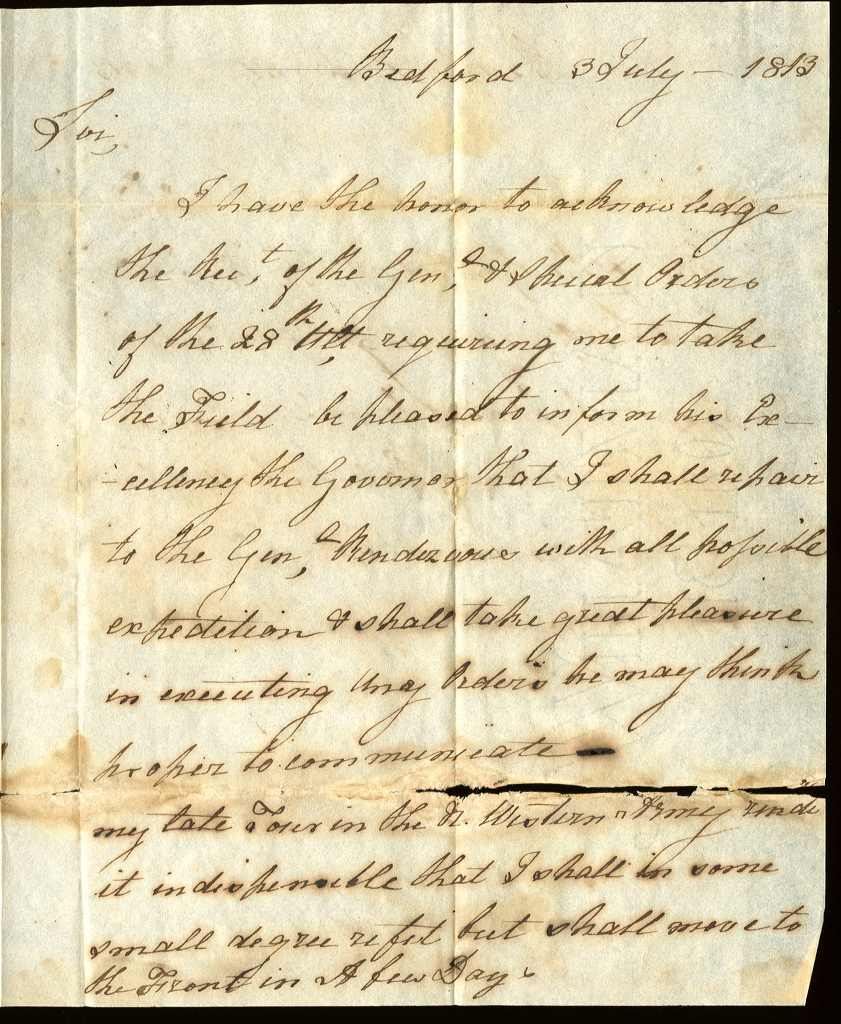 Bedford 3 July - 1813
Sir,
I have the honor to acknowledge
the Rect. of the Genl. & Special Orders
of the 28th Ult requiring me to take
the Field be pleased to inform his Ex-
-cellency the Governor that I shall repair
to the Genl. Rendezvous with all possible
expedition & shall take great pleasure
in executing any Orders he may think
proper to communicate -
my late Tour in the N. Western Army rende
it indispensible that I shall in some
small degree refit but shall move to
the Front in A few Days